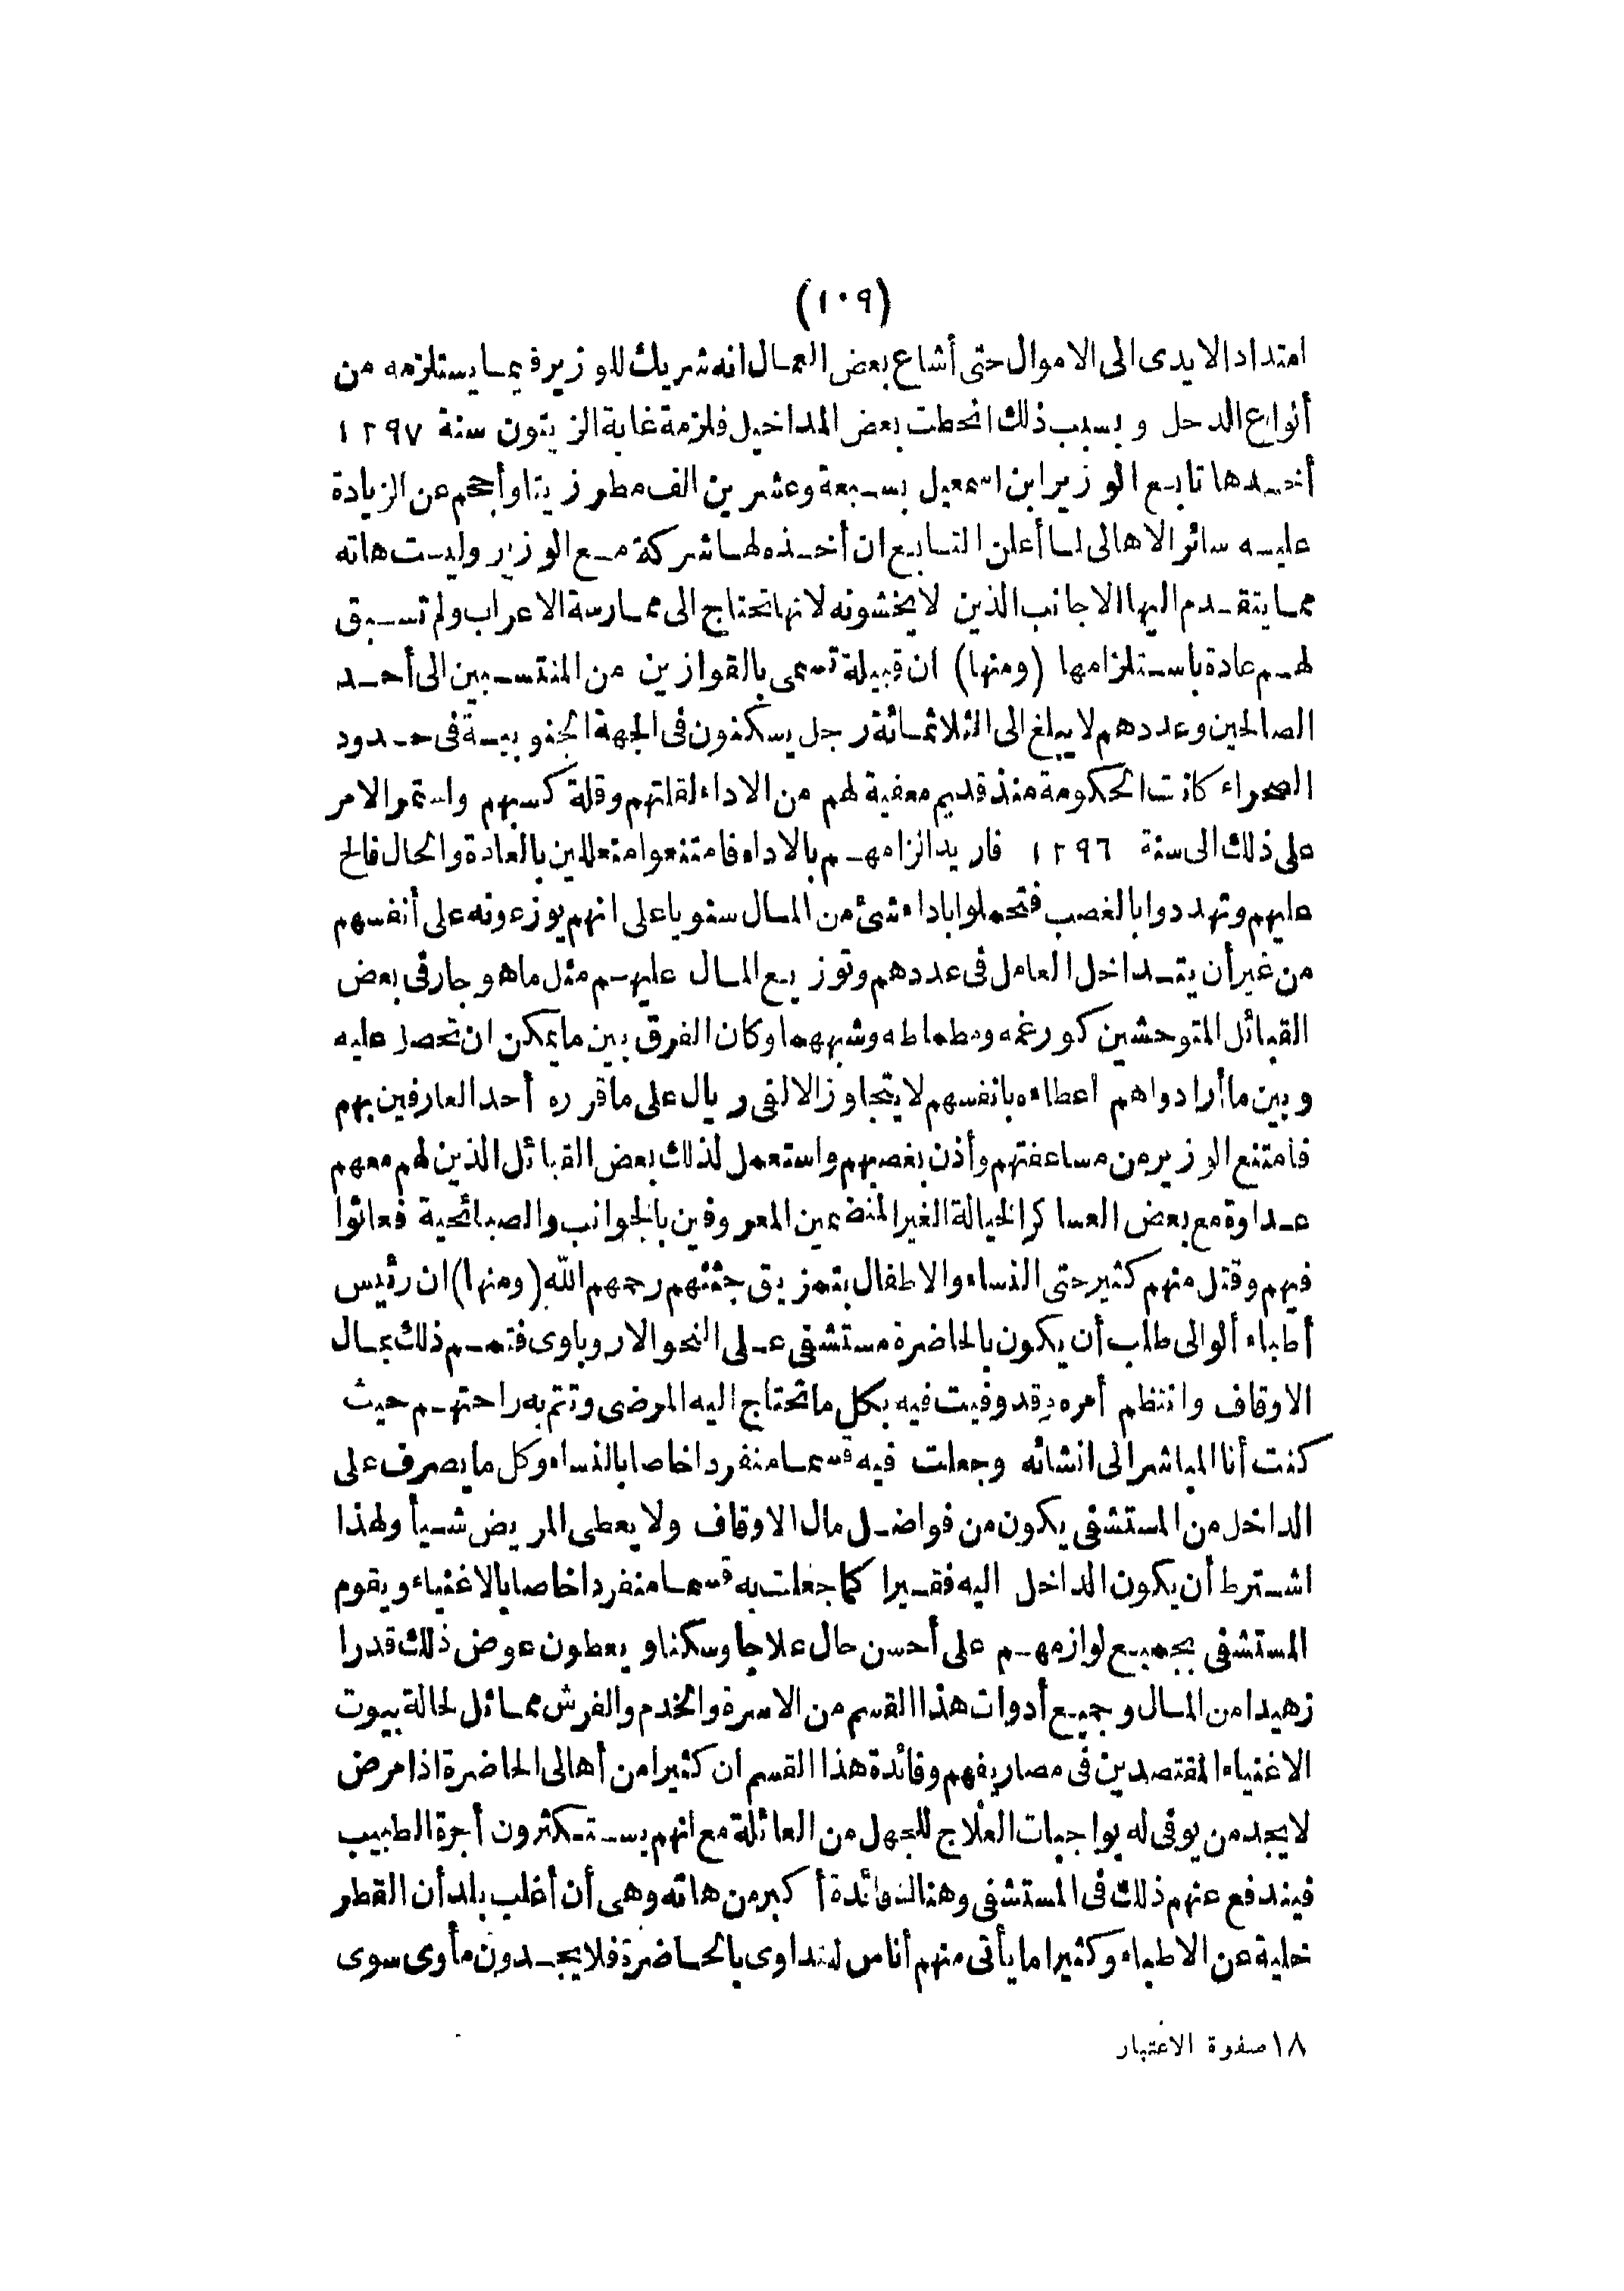 (١٠٩)
امتداد الايدى الى الاموال حتى أشاع بعض العمال انه شريك للوزير فيما يستلزمه من
أنواع الدخل وبسبب ذلك انحطت بعض المداخيل فلزمة غابة الزيتون سنة ١٢٩٧
أخذها تابع الوزير ابن اسمعيل بسبعة وعشرين الف مطر زيتا وأحجم عن الزيادة
عليه سائر الاهالى لما أعلن التابع ان أخذه لها شركة مع الوزير وليست هاته
مما يتقدم اليها الاجانب الذين لا يخشونه لانها تحتاج الى ممارسة الاعراب ولم تسبق
لهم عادة باستلزامها (ومنها) ان قبيلة تسمى بالقوازين من المنتسبين الى أحد
الصالحين وعددهم لا يبلغ الى الثلاثمائة رجل يسكنون فى الجهة الجنوبية فى حدود
الصحراء كانت الحكومة منذ قديم معفية لهم من الاداء لقلتهم وقلة كسبهم واستمر الامر
على ذلك الى سنة ١٢٩٦ فاريد الزامهم بالاداء فامتنعوا متعللين بالعادة والحال فالح
عليهم وتهددوا بالغصب فتحملوا باداء شئ من المال سنويا على انهم يوزعونه على أنفسهم
من غير أن يتداخل العامل فى عددهم وتوزيع المال عليهم مثل ما هو جار فى بعض
القبائل المتوحشين كورغمه ومطماطه وشبههما وكان الفرق بين ما يمكن ان تحصل عليه
وبين ما أرادوا هم اعطاءه بانفسهم لا يتجاوز الالفى ريال على ما قرره أحد العارفين بهم
فامتنع الوزير من مساعفتهم وأذن بغصبهم واستعمل لذلك بعض القبائل الذين لهم معهم
عداوة مع بعض العساكر الخيالة الغير المنضمين المعروفين بالجوانب والصبائحية فعاثوا
فيهم وقتل منهم كثير حتى النساء والاطفال بتمزيق جثثهم رحمهم الله (ومنها) ان رئيس
أطباء ألوالى طلب أن يكون بالحاضرة مستشفى على النحو الاروباوى فتمم ذلك بمال
الاوقاف وانتظم أمره وقد وفيت فيه بكل ما تحتاج اليه المرضى وتتم به راحتهم حيث
كنت أنا المباشر الى انشائه وجعلت فيه قسما منفردا خاصا بالنساء وكل ما يصرف على
الداخل من المستشفى يكون من فواضل مال الاوقاف ولا يعطى المريض شيأ ولهذا
اشترط أن يكون الداخل اليه فقيرا كما جعلت به قسما منفردا خاصا بالاغنياء ويقوم
المستشفى بجميع لوازمهم على أحسن حال علاجا وسكنا ويعطون عوض ذلك قدرا
زهيدا من المال وجميع أدوات هذا القسم من الاسرة والخدم والفرش مماثل لحالة بيوت
الاغنياء المقتصدين فى مصاريفهم وفائدة هذا القسم ان كثيرا من أهالى الحاضرة اذا مرض
لا يجد من يوفى له بواجبات العلاج للجهل من العائلة مع انهم يستكثرون أجرة الطبيب
فيندفع عنهم ذلك فى المستشفى وهنا لفائدة أكبر من هاته وهى أن أغلب بلدان القطر
خلية عن الاطباء وكثيرا ما يأتى منهم أناس لتداوى بالحاضرة فلا يجدون مأوى سوى
١٨ صفوة الاعتبار